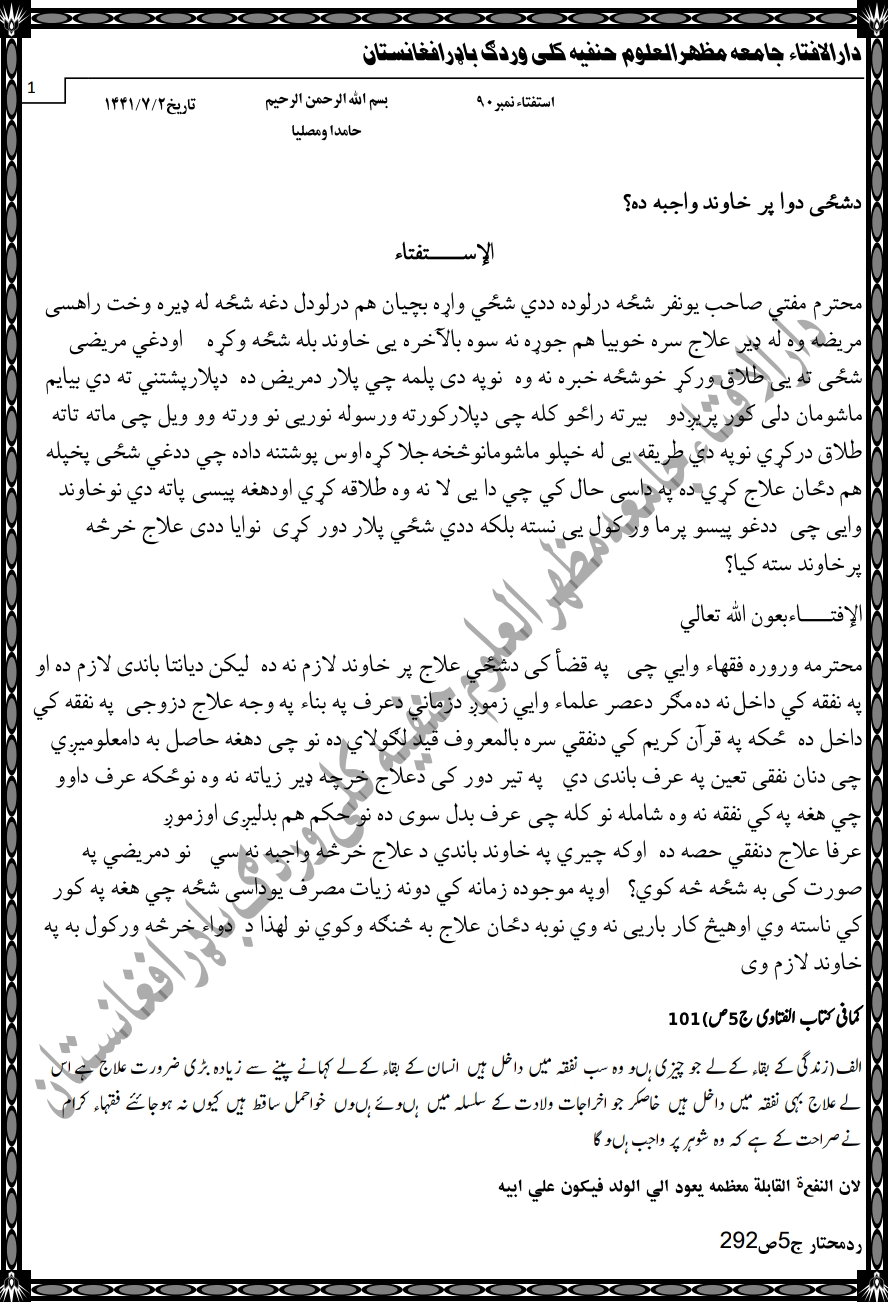 دارالافتاء جامعه مظهرالعلوم حنفیه کلی وردگ باډرافغانستان
1
استفتاء نمبر۹۰
بسم الله الرحمن الرحیم
تاریخ۱۴۴۱/۷/۲
حامدا ومصلیا
دشځی دوا پر خاوند واجبه ده؟
الإســـــتفتاء
محترم مفتي صاحب یونفر شځه درلوده ددي شځي واړه بچیان هم درلودل دغه شځه له ډیره وخت راهسی
مریضه وه له ډیر علاج سره خوبیا هم جوړه نه سوه بالآخره یی خاوند بله شځه وکړه اودغي مریضی
شځی ته یی طلاق ورکړ خوشځه خبره نه وه نوپه دی پلمه چي پلار دمریض ده دپلارپشتني ته دي بیایم
ماشومان دلی کور پریږدو بیرته راځو کله چی دپلارکورته ورسوله نوریی نو ورته وو ویل چی ماته تاته
طلاق درکړي نوپه دي طریقه یی له خپلو ماشومانوڅخه جلا کړه اوس پوشتنه داده چي ددغي شځی پخپله
هم دځان علاج کړي ده په داسی حال کي چي دا یی لا نه وه طلاقه کړي اودهغه پیسی پاته دي نوخاوند
وایی چی ددغو پیسو پرما ورکول یی نسته بلکه ددي شځي پلار دور کړی نوایا ددی علاج خرڅه
پرخاوند سته کیا؟
الإفتـــــاءبعون الله تعالي
محترمه وروره فقهاء وایي چی په قضأ کی دشځي علاج پر خاوند لازم نه ده لیکن دیانتا باندی لازم ده او
په نفقه کي داخل نه ده مګر دعصر علماء وایي زموږ دزماني دعرف په بناء په وجه علاج دزوجی په نفقه کي
داخل ده ځکه په قرآن کریم کي دنفقي سره بالمعروف قید لګولاي ده نو چی دهغه حاصل به دامعلومیږي
چی دنان نفقی تعین په عرف باندی دي په تیر دور کی دعلاج خرچه ډیر زیاته نه وه نوځکه عرف داوو
چي هغه په کي نفقه نه وه شامله نو کله چی عرف بدل سوی ده نو حکم هم بدلیږی اوزموږ
عرفا علاج دنفقي حصه ده اوکه چیري په خاوند باندي د علاج خرڅه واجبه نه سي نو دمریضي په
صورت کی به شځه څه کوي؟ اوپه موجوده زمانه کي دونه زیات مصرف یوداسی شځه چي هغه په کور
کي ناسته وي اوهیڅ کار باریی نه وي نوبه دځان علاج به څنګه وکوي نو لهذا د دواء خرڅه ورکول به په
خاوند لازم وی
کمافی کتاب الفتاوی ج5ص)101
الف(زندگی کے بقاء کےلے جو چیزی ہںو وہ سب نفقہ میں داخل ہیں انسان کے بقاء کےلے کہانے پینے سے زیادہ بڑی ضرورت علاج ہے اس
لے علاج بہی نفقہ میں داخل ہیں خاصکر جو اخراجات ولادت کے سلسلہ میں ہںوئے ہںوں خواحمل ساقط ہیں کیوں نہ ہوجائئے فقہاء کرام
نےصراحت کے ہے کہ وہ شوہر پر واجب ہںو گا
لان النفعة القابلة معظمه یعود الي الولد فیکون علي ابیه
ردمحتار ج5ص292
دارالافتاء جامعه مظهرالعلوم حنفیه کلی وردگ باډرافغانستان